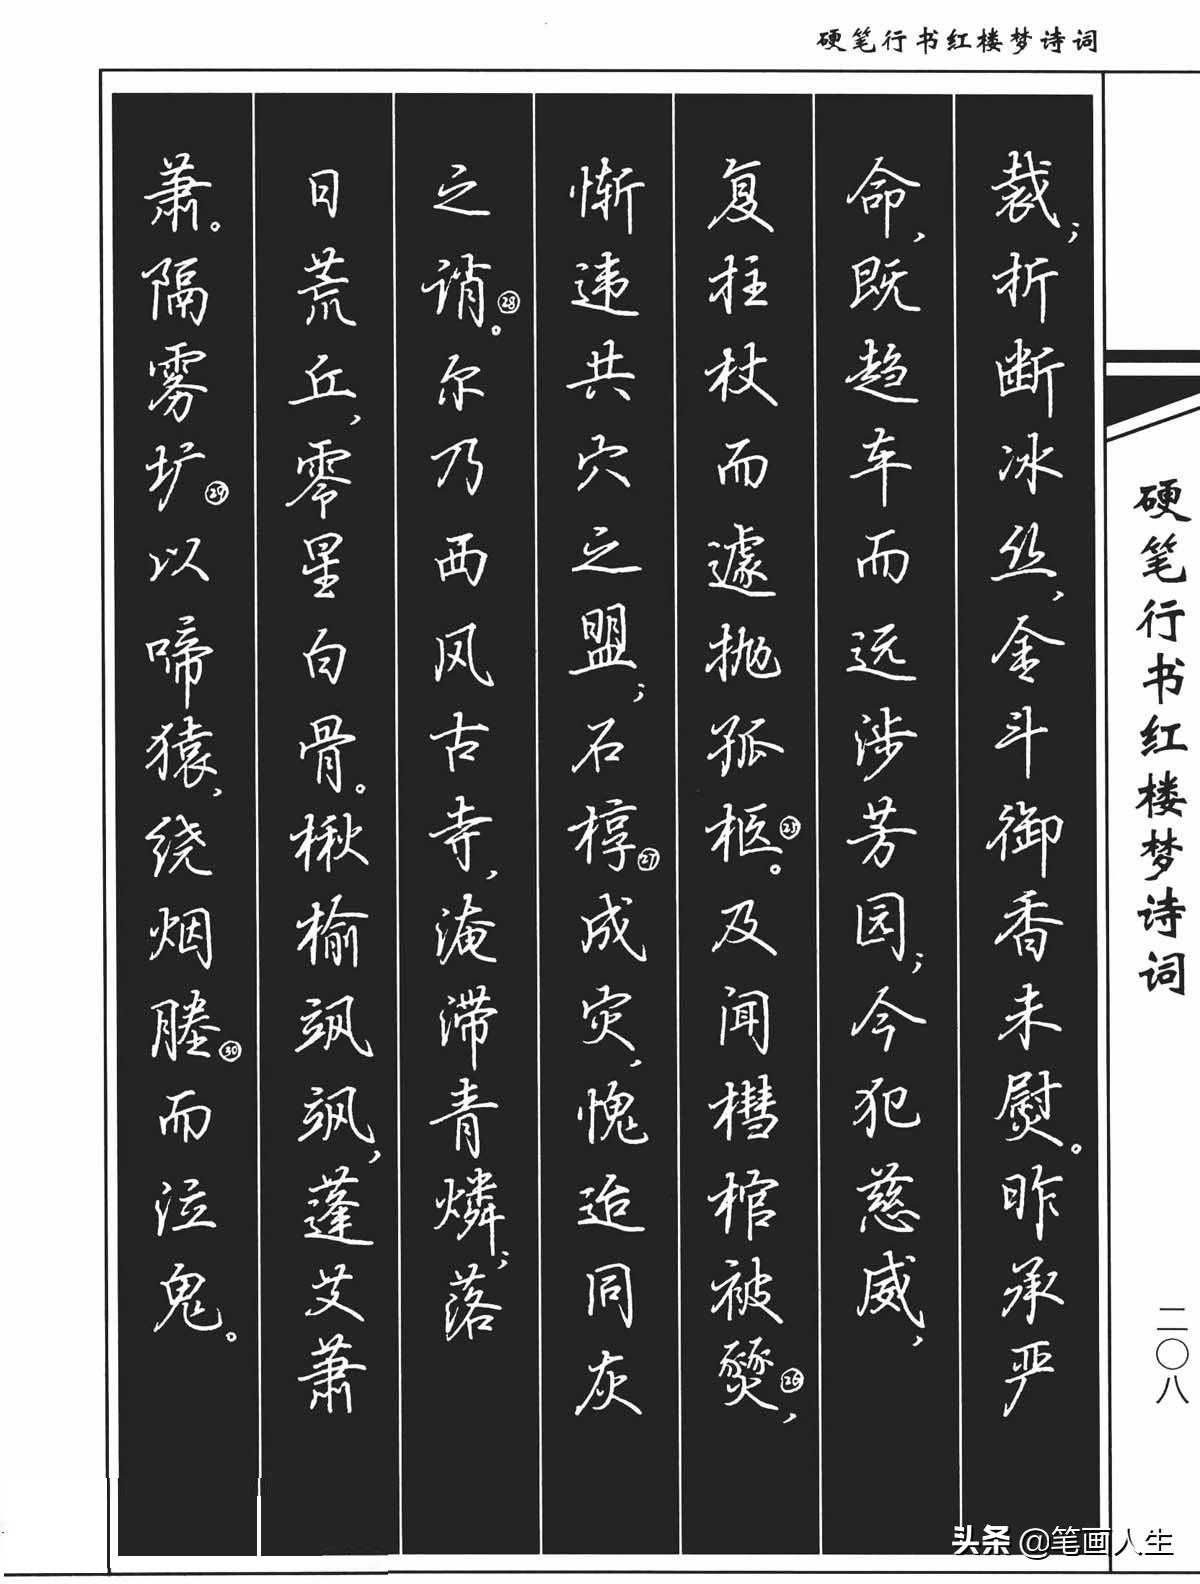 硬笔行书红楼梦诗词
裁；折断冰丝，金斗御香未熨。昨承严
命，既趋车而远涉芳园；今犯慈威，
复拄杖而遽抛孤柩㉕。及闻槥棺被燹㉖，
惭违共穴之盟；石椁㉗成灾，愧迨同灰
之诮㉘。尔乃西风古寺，淹滞青燐；落
日荒丘，零星白骨。楸榆飒飒，蓬艾萧
萧。隔雾圹㉙以啼猿，绕烟塍㉚而泣鬼。
硬笔行书红楼梦诗词
二〇八
头条 @笔画人生